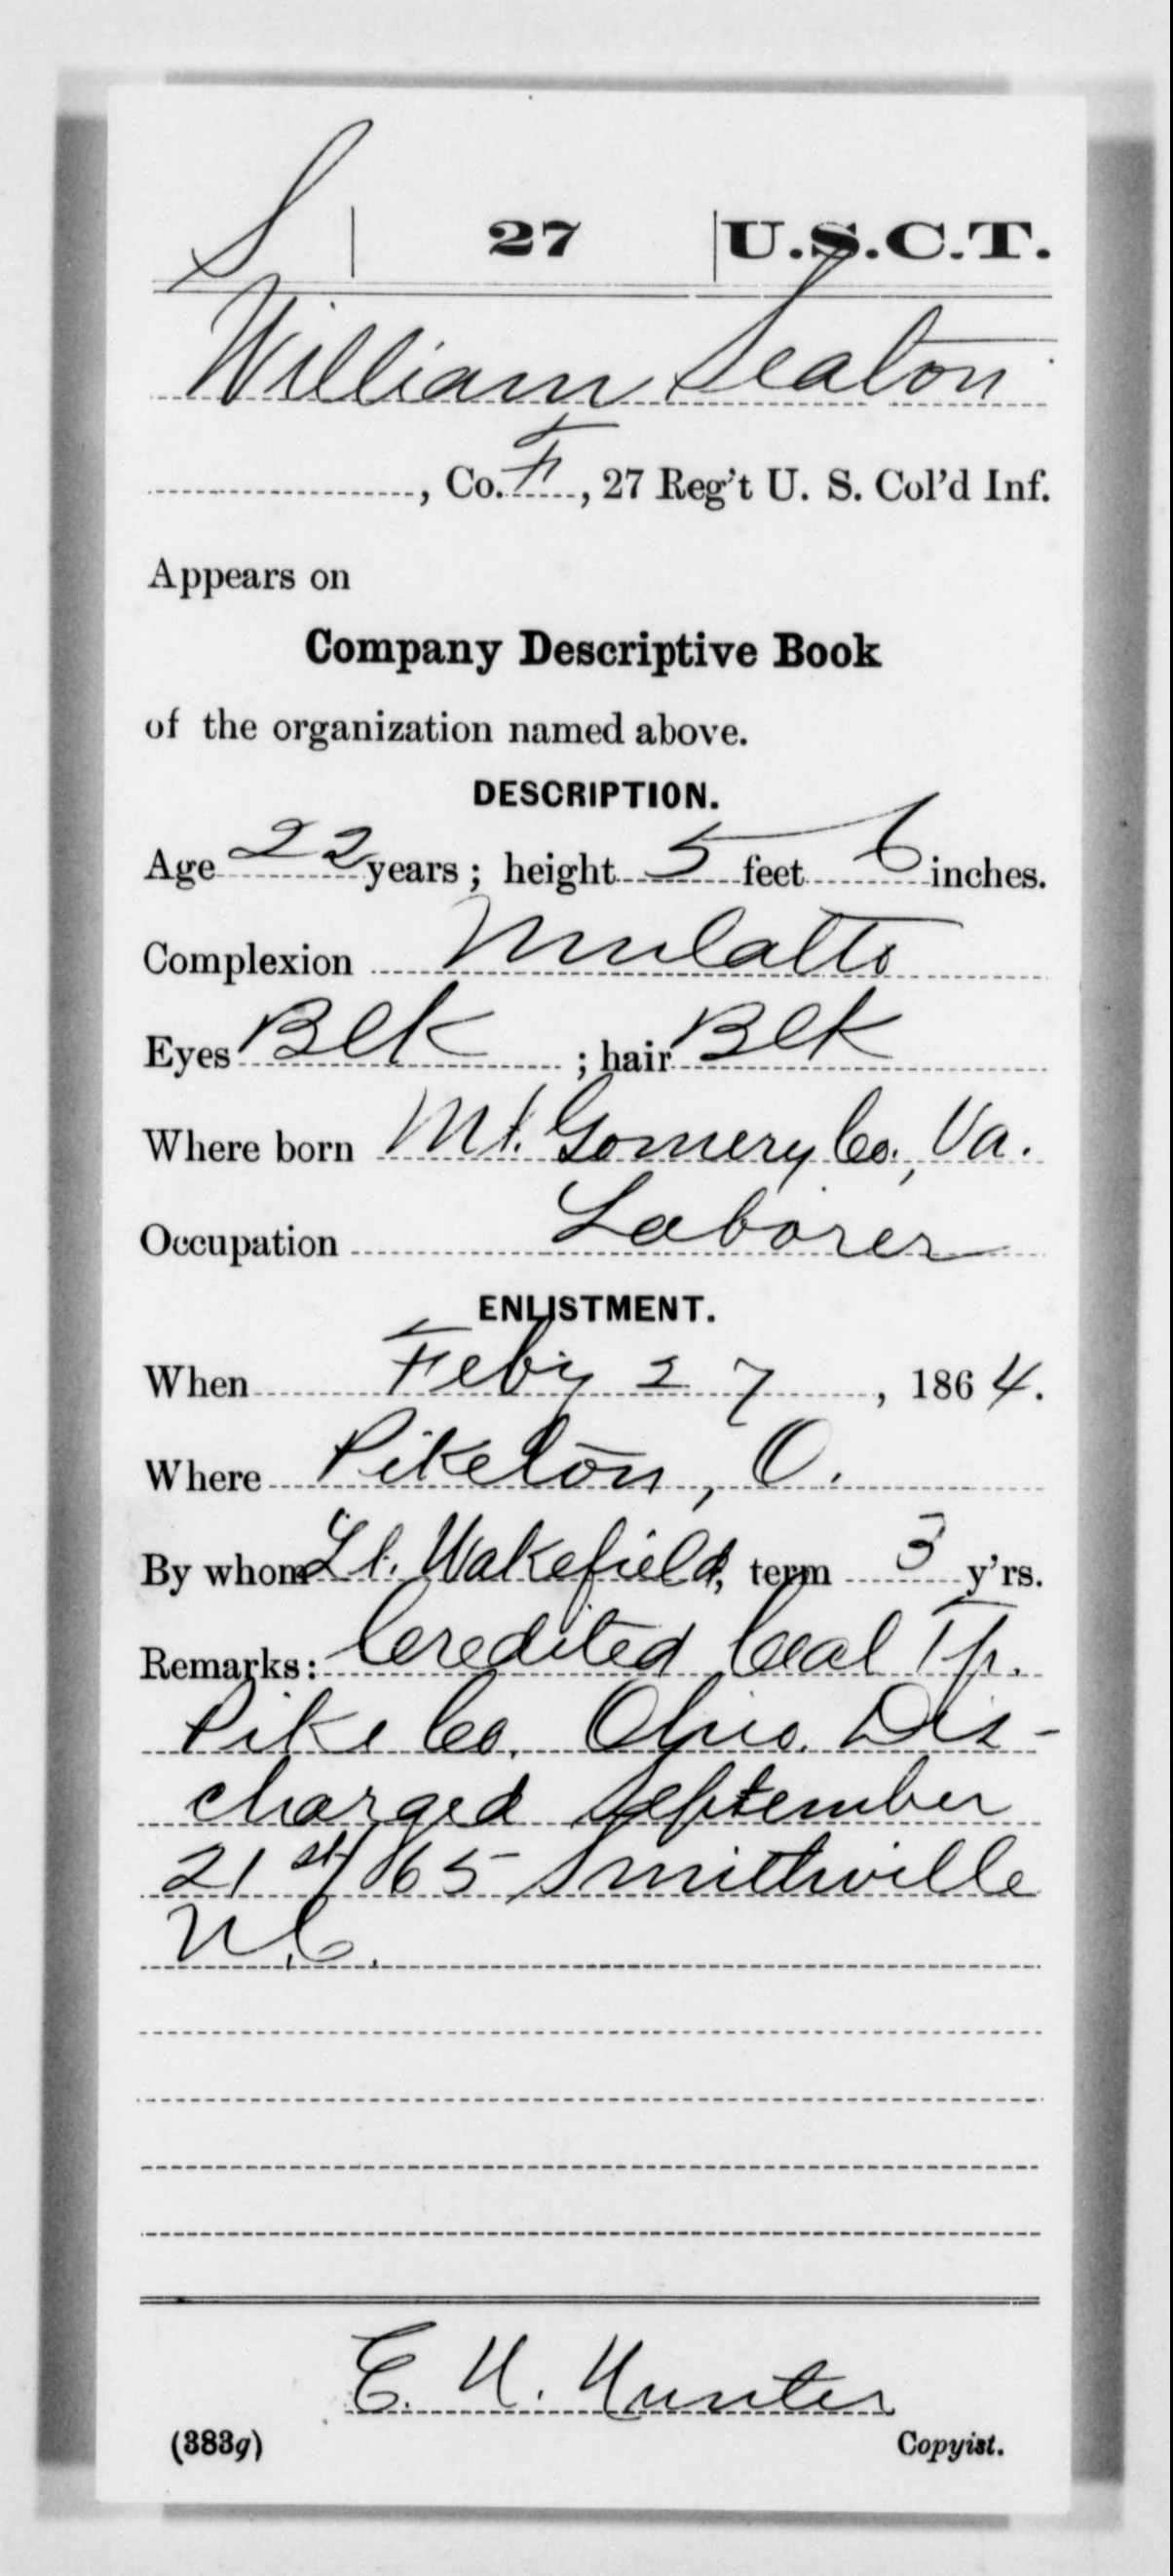 S | 27 | U.S.C.T.
William Seaton
, Co. F, 27 Reg't U. S. Col'd Inf.
Appears on
Company Descriptive Book
of the organization named above.
DESCRIPTION.
Age 22 years; height 5 feet 6 inches.
Complexion Mulatto
Eyes Blk ; hair Blk
Where born Mt. Gomery Co., Va.
Occupation Laborer
ENLISTMENT.
When Feby 27, 1864.
Where Piketon, O.
By whom Lt. Wakefield, term 3 y'rs.
Remarks: Credited Beal Tp.
Pike Co. Ohio. Dis-
charged September
21st/65 Smithville
N.C.
E. H. Hunter
(383g) Copyist.